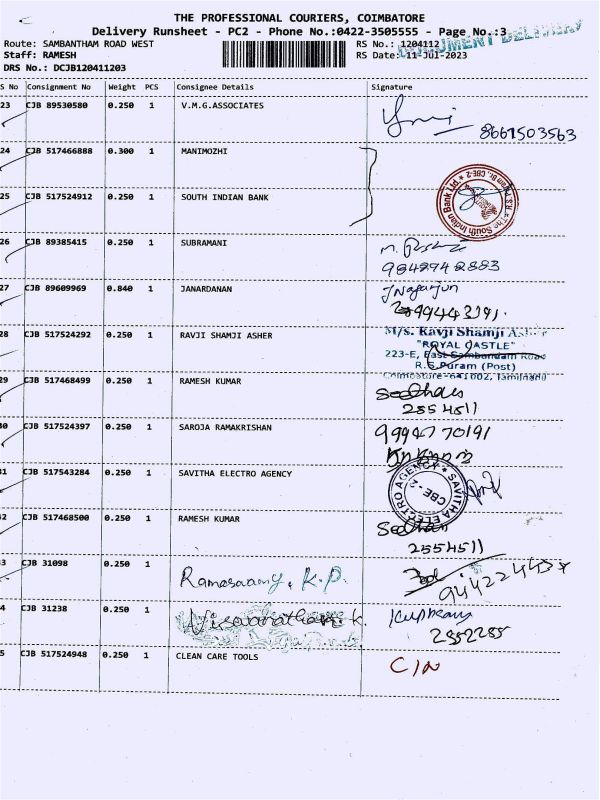 THE PROFESSIONAL COURIERS, COIMBATORE
Delivery Runsheet - PC2 - Phone No.:0422-3505555 - Page No.:3
DOCUMENT DELIVERY
Route: SAMBANTHAM ROAD WEST RS No.: 1204112
Staff: RAMESH RS Date: 11-Jul-2023
DRS No.: DCJB120411203
S No Consignment No Weight PCS Consignee Details Signature
23 CJB 89530580 0.250 1 V.M.G.ASSOCIATES
8667503563
24 CJB 517466888 0.300 1 MANIMOZHI
25 CJB 517524912 0.250 1 SOUTH INDIAN BANK
The South Indian Bank Ltd. CBE-2
26 CJB 89385415 0.250 1 SUBRAMANI
9842742883
27 CJB 89609969 0.840 1 JANARDANAN
J Nagarjun
28 CJB 517524292 0.250 1 RAVJI SHAMJI ASHER
M/s. Ravji Shamji Asher
"ROYAL CASTLE"
223-E, East Sambandam Road
R.S.Puram (Post)
Coimbatore-641002, Tamilnadu
29 CJB 517468499 0.250 1 RAMESH KUMAR
2554511
30 CJB 517524397 0.250 1 SAROJA RAMAKRISHAN
9994770191
31 CJB 517543284 0.250 1 SAVITHA ELECTRO AGENCY
SAVITHA ELECTRO AGENCY CBE-2
32 CJB 517468500 0.250 1 RAMESH KUMAR
2554511
33 CJB 31098 0.250 1 Ramasaamy. K.P.
34 CJB 31238 0.250 1 Visvanathan. K.
2852285
35 CJB 517524948 0.250 1 CLEAN CARE TOOLS
C/N